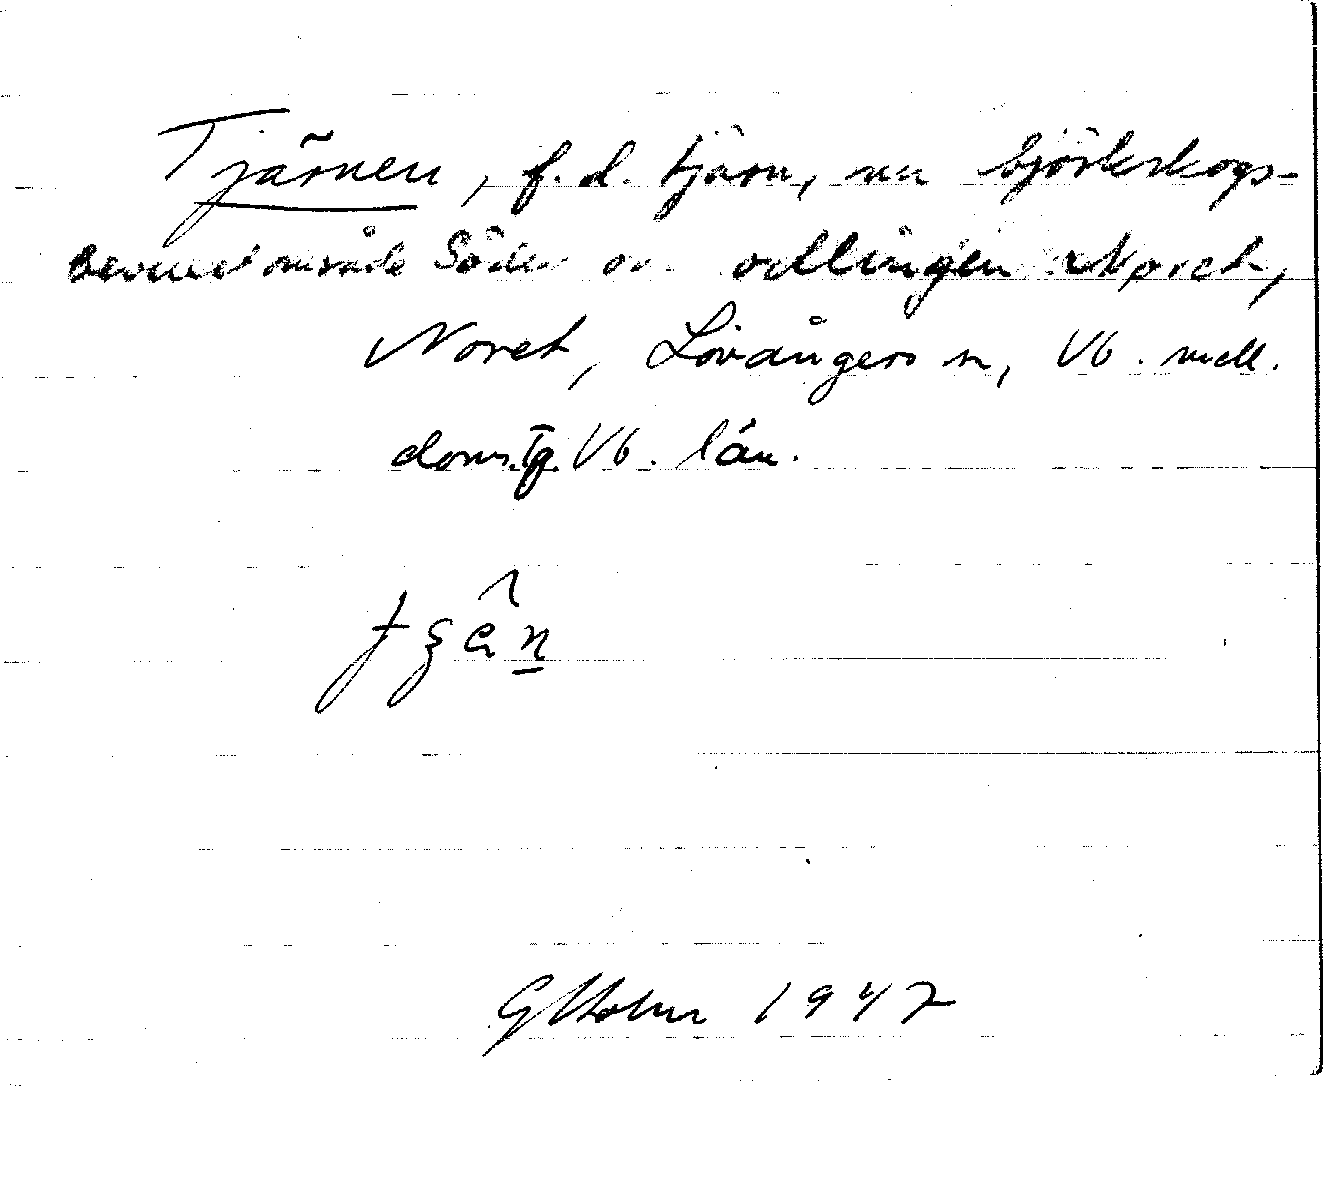 Tjärnen, f.d. tjärn, nu björkskogs-
bevuxet område Söder om odlingen Noret,
Noret, Lövångers sn, Vb. mell.
doms.tg. Vb. län.
GHolm 1947